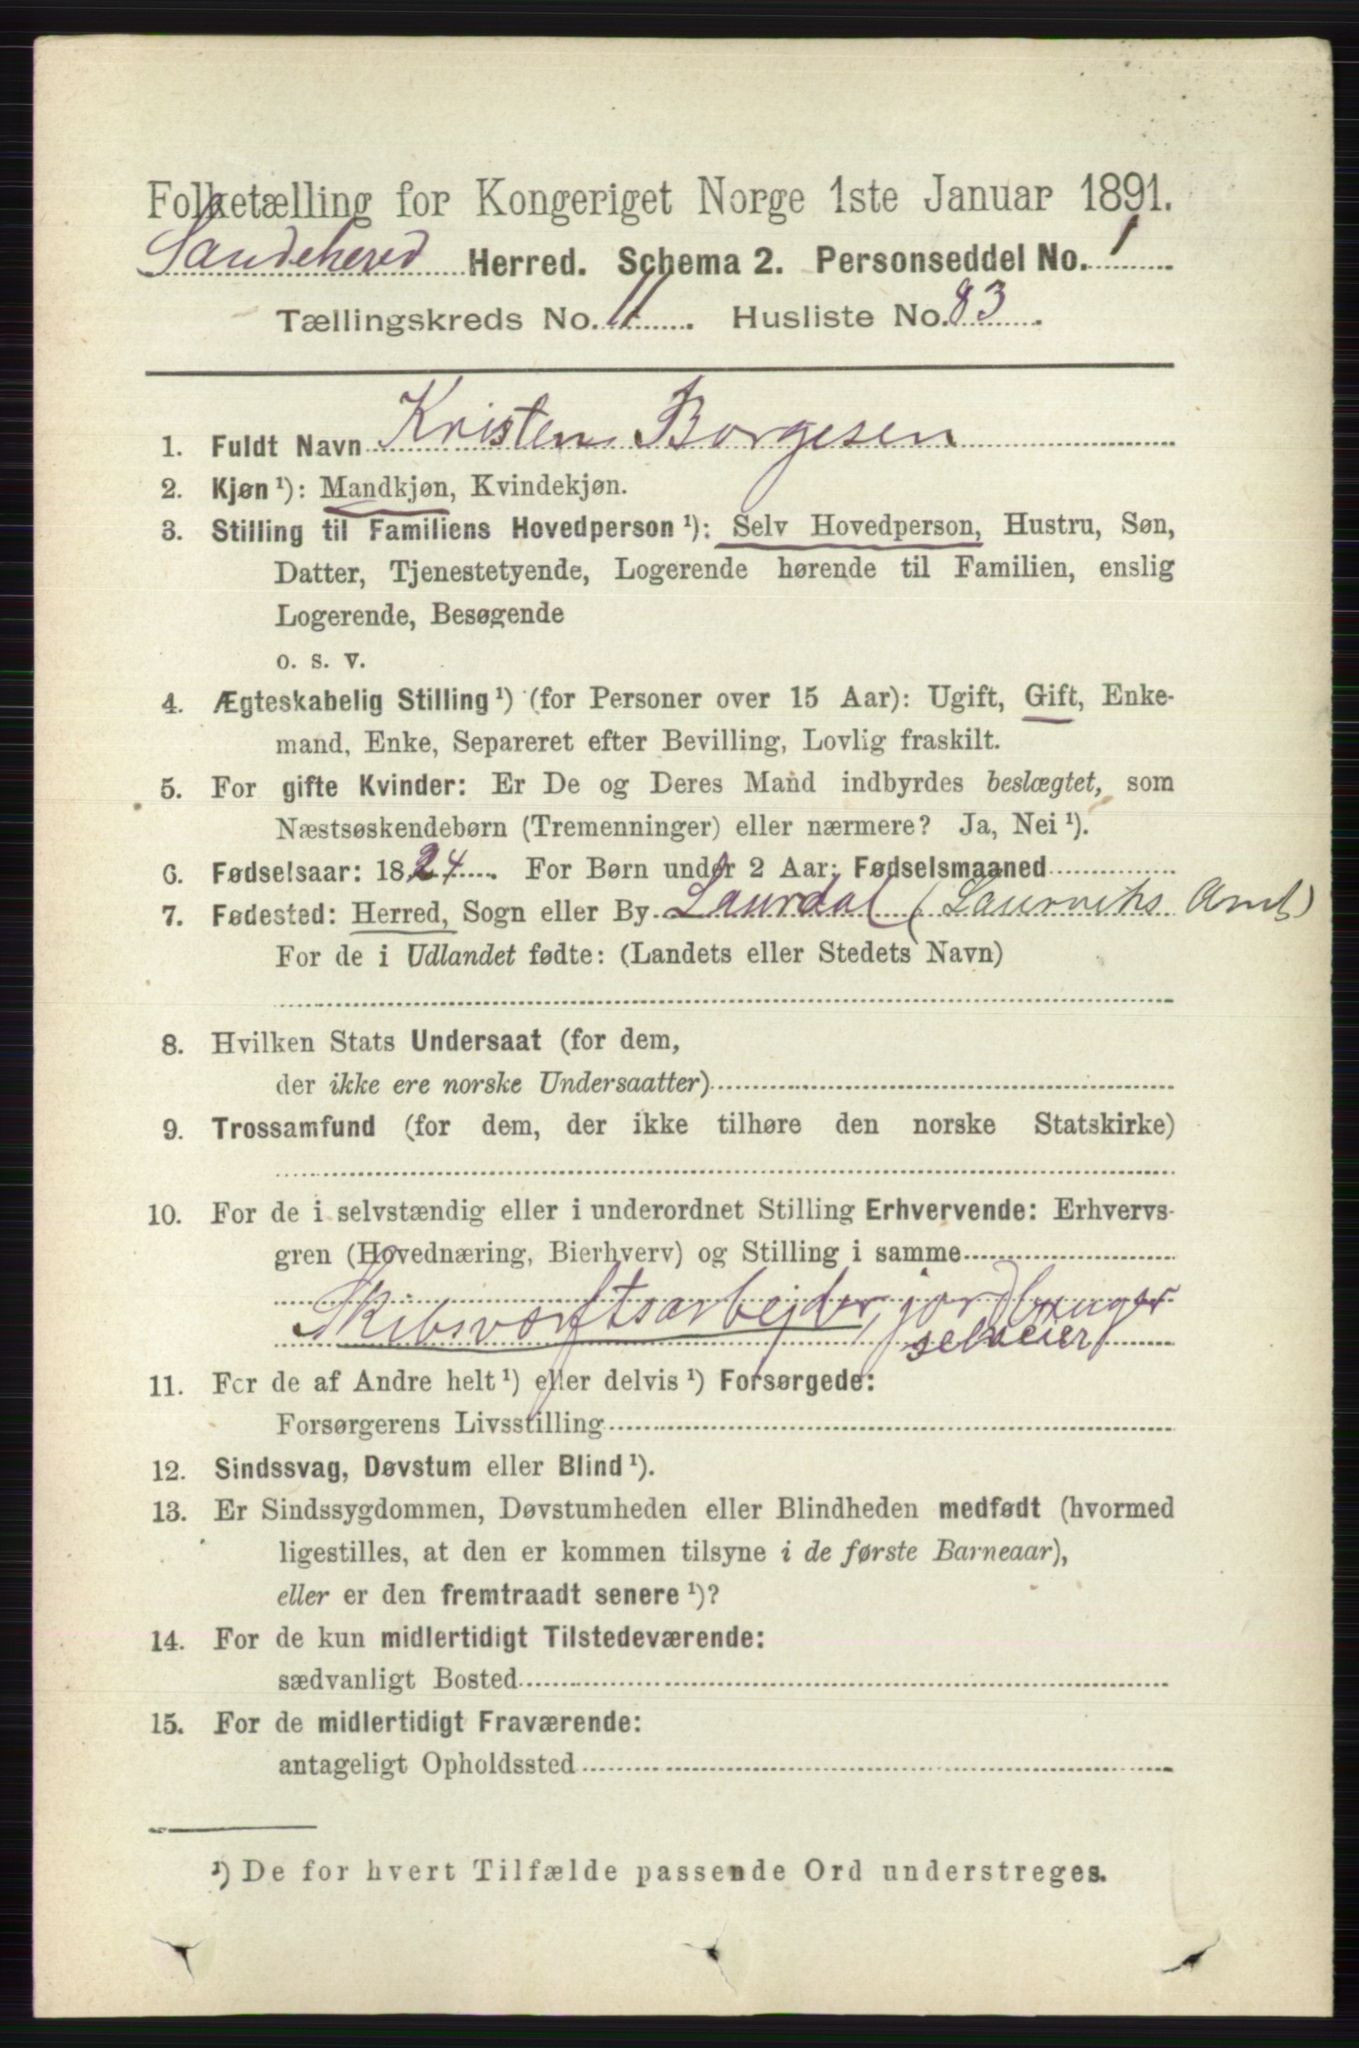 Folketælling for Kongeriget Norge 1ste Januar 1891.
Sandehered Herred. Schema 2. Personseddel No. 1
Tællingskreds No. 11. Husliste No. 83.
1. Fuldt Navn Kristen Borgesen
2. Kjøn ¹): Mandkjøn, Kvindekjøn.
3. Stilling til Familiens Hovedperson ¹): Selv Hovedperson, Hustru, Søn,
Datter, Tjenestetyende, Logerende hørende til Familien, enslig
Logerende, Besøgende
o. s. v.
4. Ægteskabelig Stilling ¹) (for Personer over 15 Aar): Ugift, Gift, Enke-
mand, Enke, Separeret efter Bevilling, Lovlig fraskilt.
5. For gifte Kvinder: Er De og Deres Mand indbyrdes beslægtet, som
Næstsøskendebørn (Tremenninger) eller nærmere? Ja, Nei ¹).
6. Fødselsaar: 1824. For Børn under 2 Aar: Fødselsmaaned
7. Fødested: Herred, Sogn eller By Laurdal (Laurviks Amt)
For de i Udlandet fødte: (Landets eller Stedets Navn)
8. Hvilken Stats Undersaat (for dem,
der ikke ere norske Undersaatter)
9. Trossamfund (for dem, der ikke tilhøre den norske Statskirke)
10. For de i selvstændig eller i underordnet Stilling Erhvervende: Erhvervs-
gren (Hovednæring, Bierhverv) og Stilling i samme
Skibsværftsarbejder, jordbruger
selveier
11. For de af Andre helt ¹) eller delvis ¹) Forsørgede:
Forsørgerens Livsstilling
12. Sindssvag, Døvstum eller Blind ¹).
13. Er Sindssygdommen, Døvstumheden eller Blindheden medfødt (hvormed
ligestilles, at den er kommen tilsyne i de første Barneaar),
eller er den fremtraadt senere ¹)?
14. For de kun midlertidigt Tilstedeværende:
sædvanligt Bosted
15. For de midlertidigt Fraværende:
antageligt Opholdssted
¹) De for hvert Tilfælde passende Ord understreges.